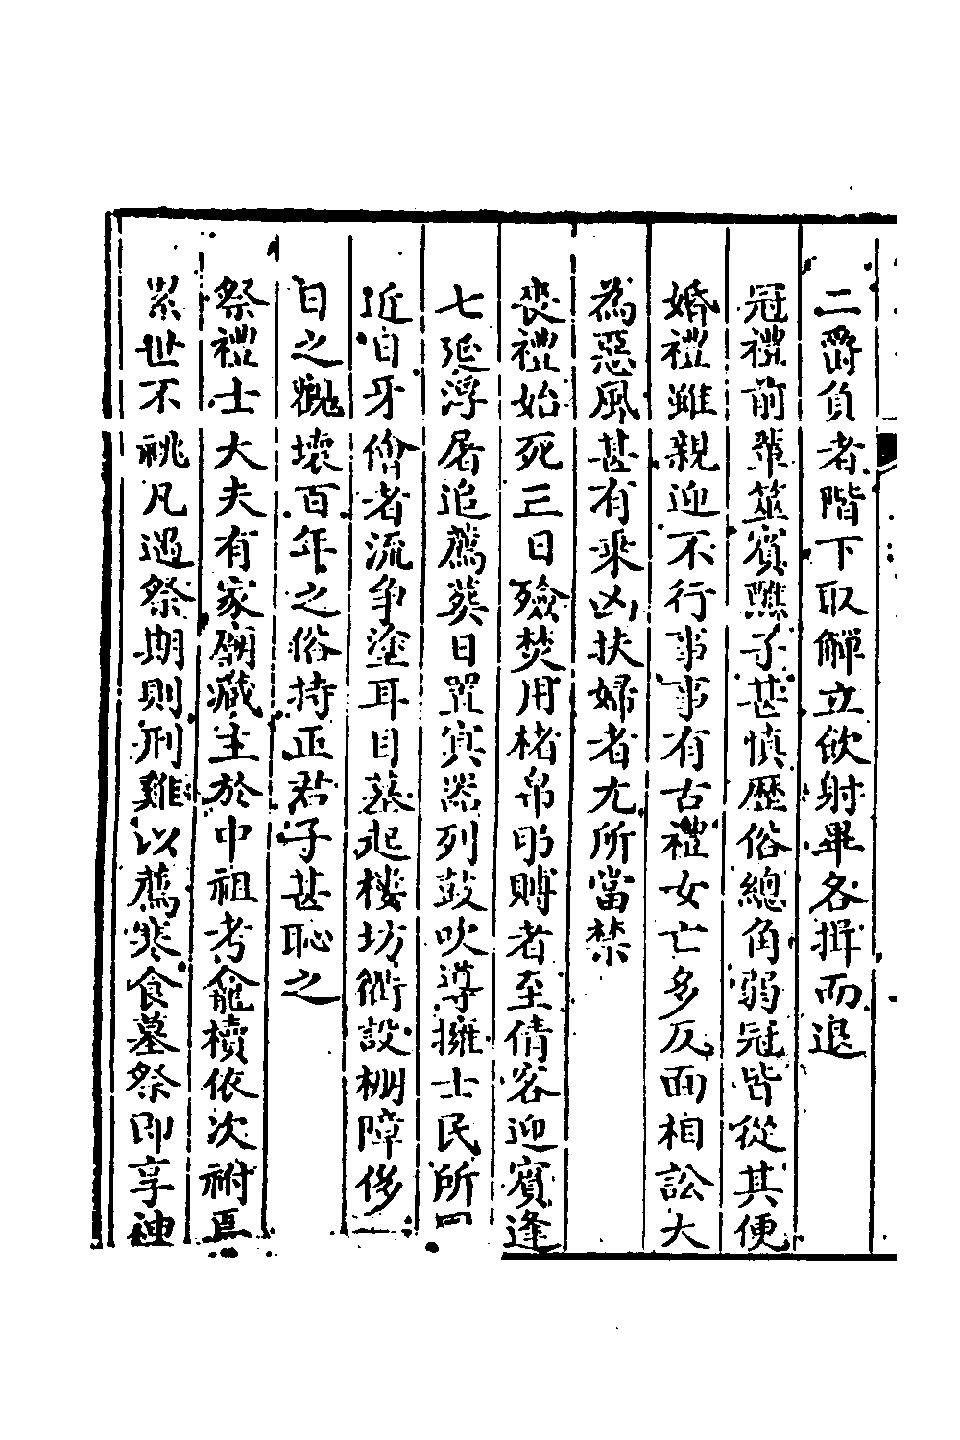 二爵負者階下取觶立飲射畢各揖而退
冠禮前輩筮賓醮子甚慎歷俗總角弱冠皆從其便
婚禮雖親迎不行事事有古禮女亡多反面相訟大
為惡風甚有乘凶扶婦者尤所當禁
喪禮始死三日殮焚用楮帛助賻者至倩客迎賓逢
七延浮屠追薦葵日置冥器列鼓吹導擁士民所同
近自牙儈者流爭塗耳目墓起樓坊衢設棚障侈一
日之觀壞百年之俗持正君子甚恥之
祭禮士大夫有家廟藏主於中祖考龕櫝依次祔焉
累世不祧凡遇祭期則刑雞以薦寒食墓祭即享神